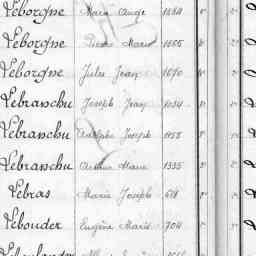 Leborgne Marie Ange 1884
Leborgne Pierre Marie 1605
Leborgne Jules Jean 1670
Lebranchu Joseph Jean 1034
Lebranchu Adolphe Joseph 1158
Lebranchu Arthur Marie 1335
Lebras Marie Joseph 611
Lebouder Eugène Marie 704